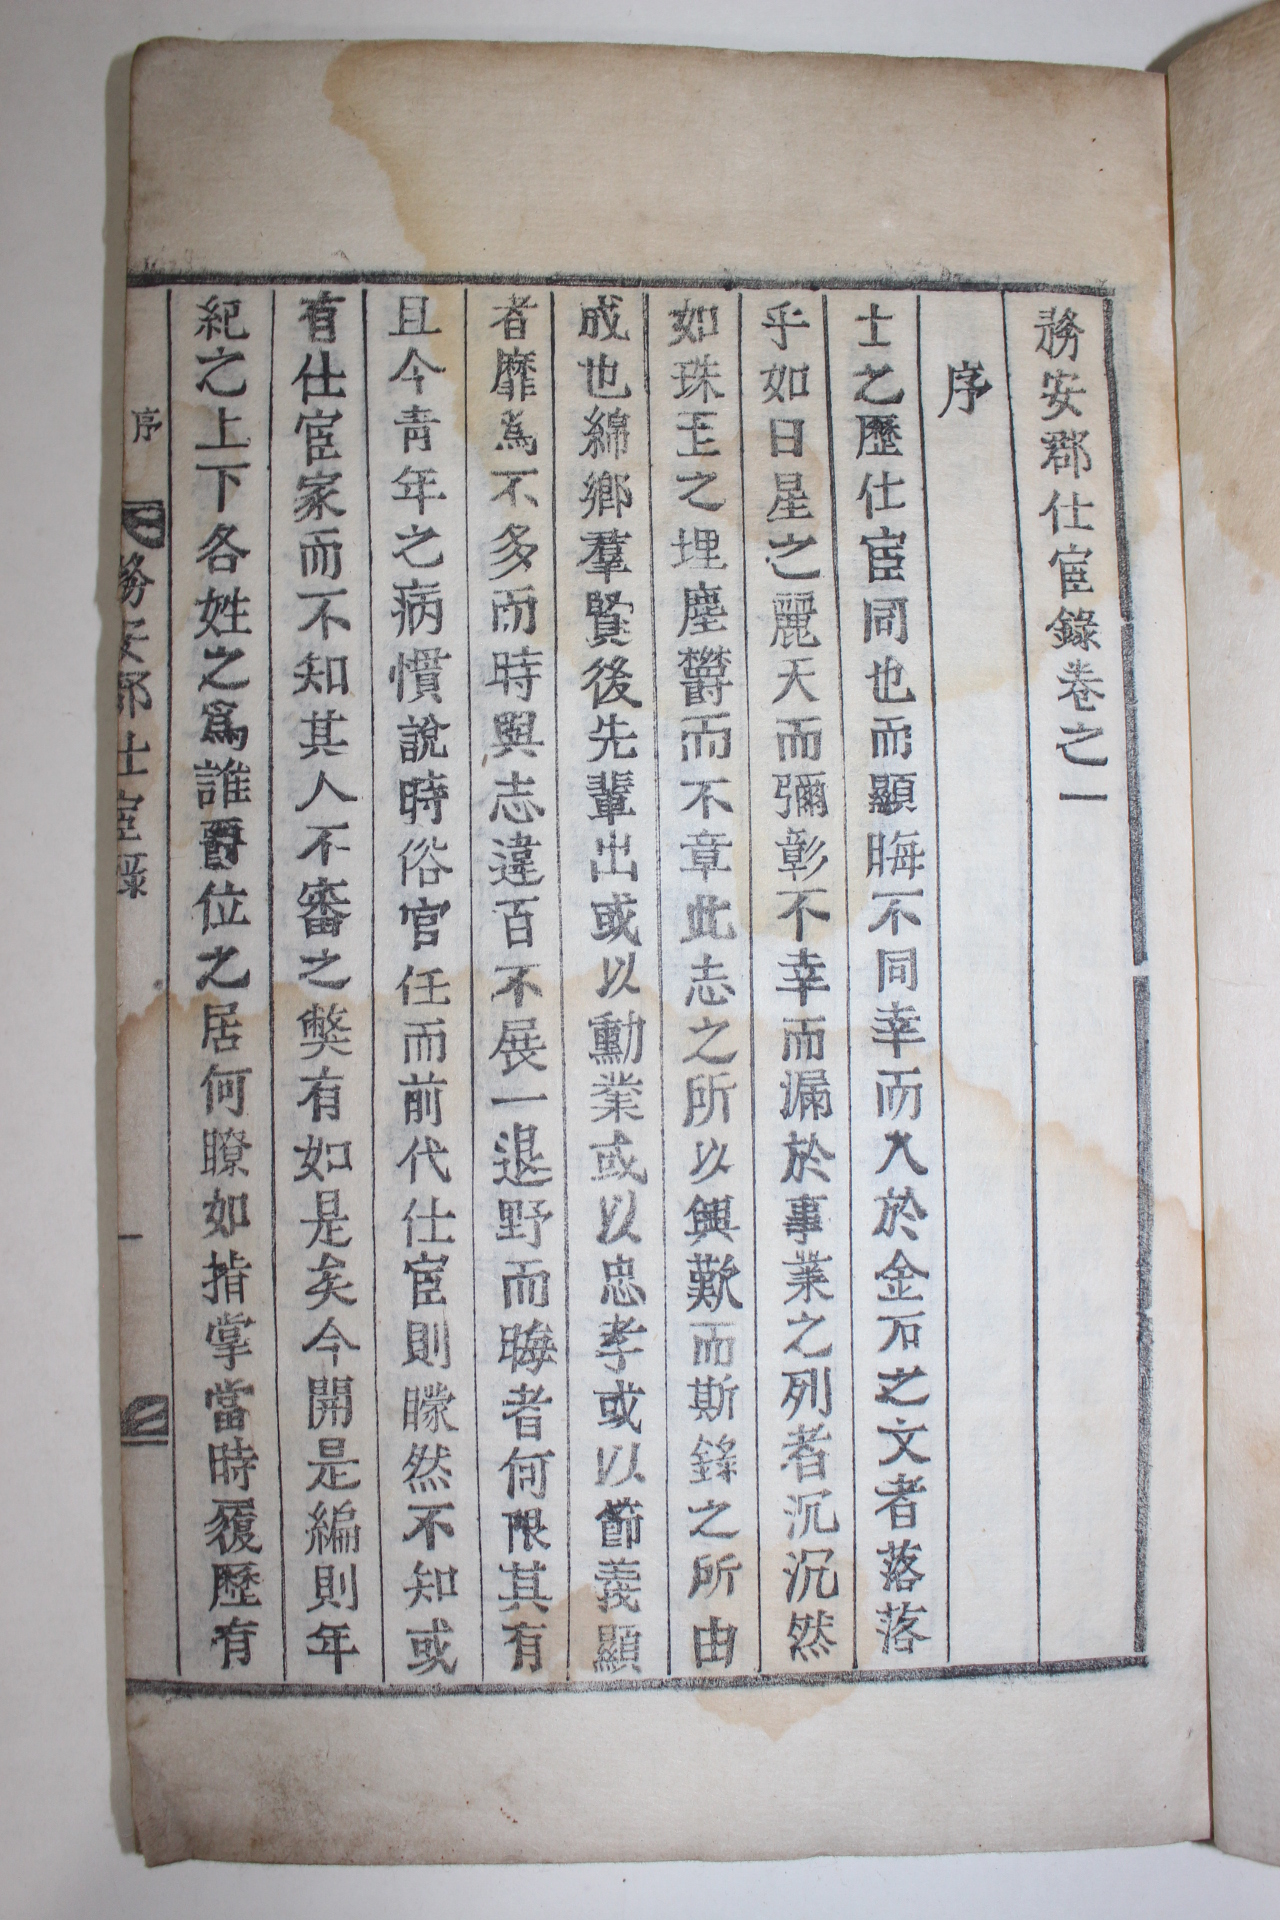 務安郡仕宦錄卷之一
序
士之歷仕宦同也而顯晦不同幸而入於金石之文者落落
乎如日星之麗天而彌彰不幸而漏於事業之列者沉沉然
如珠玉之埋塵欝而不章此志之所以興歎而斯錄之所由
成也綿鄉羣賢後先輩出或以勳業或以忠孝或以節義顯
者靡爲不多而時與志違百不展一退野而晦者何限其有
且今靑年之病慣說時俗官任而前代仕宦則矇然不知或
有仕宦家而不知其人不審之獘有如是矣今開是編則年
紀之上下各姓之爲誰爵位之居何瞭如指掌當時履歷有
序 務安郡仕宦錄 一